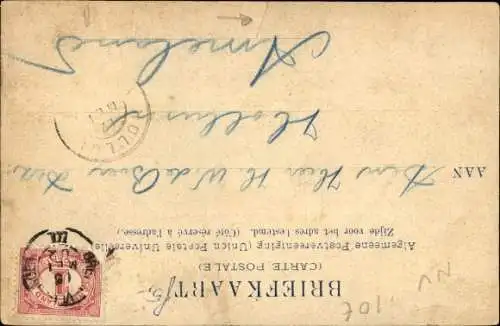 BRIEFKAART
(CARTE POSTALE)
Algemeene Postvereeniging (Union Postale Universelle)
Zijde voor het adres bestemd. (Côté réservé à l'adresse.)
AAN Den Heer H. W. de Boer
Hollum
Ameland
10t
NV